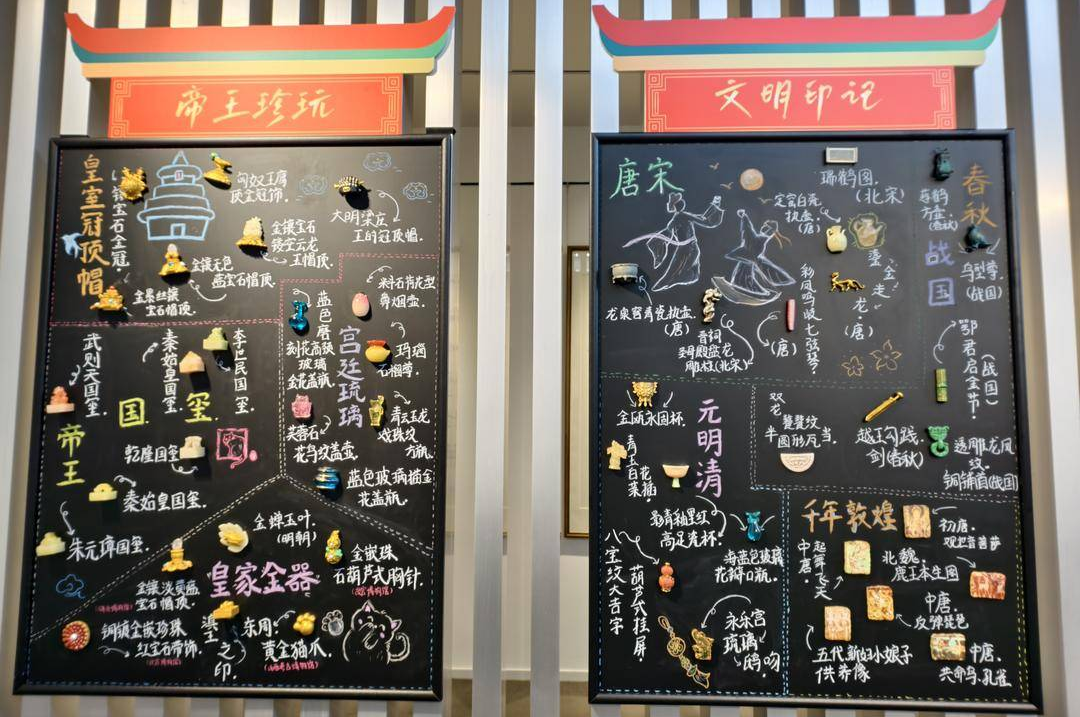 帝王珍玩
皇室冠顶帽
镶宝石金冠.
匈奴王鹰
顶金冠饰.
大明梁庄
王的冠顶帽.
金镶宝石
镂空云龙
王帽顶.
金镶无色
蓝宝石帽顶.
金累丝镶
宝石帽顶.
帝王
国玺
武则天国玺.
秦始皇国玺
李世民国玺.
乾隆国玺
秦始皇国玺.
朱元璋国玺.
宫廷琉璃
蓝色磨
刻花高颈
玻璃
金花盖瓶.
鼻烟壶.
玛瑙
石榴尊.
芙蓉石
花鸟纹盖壶.
青玉龙
戏珠纹
方瓶.
蓝色玻璃描金
花盖瓶.
皇家金器
金蝉玉叶.
(明朝)
金嵌珠
石葫芦式胸针.
金镶淡黄蓝
宝石帽顶.
铜镀金嵌珍珠
红宝石带饰.
滇王之印.
东周.
黄金猫爪.
文明印记
唐宋
瑞鹤图.
(北宋)
定窑白瓷
执壶.
(唐)
鎏金走龙.(唐)
彩凤鸣岐七弦琴.
(唐)
龙泉窑青瓷执壶.
(唐)
晋祠
圣母殿盘龙
雕柱(北宋)
春秋
战国
莲鹤
方壶.
(春秋)
鸟型尊.
(战国)
鄂君启金节.
(战国)
双龙
饕餮纹
半圆形瓦当.
越王勾践
剑(春秋)
透雕龙凤
纹.
铜铺首(战国)
元明清
金瓯永固杯.
青玉白花
菜插.
高足瓷杯.
八宝纹大吉字
葫芦式挂屏.
海蓝色玻璃
花瓣口瓶.
永乐宫
琉璃
鸱吻
千年敦煌
初唐.
观世音菩萨
中唐.
起舞飞天
北魏.
鹿王本生图
中唐.
反弹琵琶
五代新妇小娘子
供养像
中唐.
共命鸟.孔雀